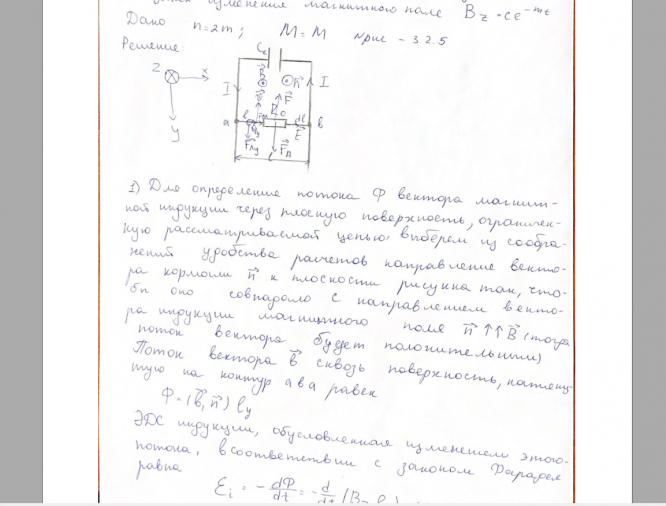 изменения магнитного поле B⃗z = ce^-mt
Дано n=2m ; M=M Nрис - 3 2.5
Решение:
C
Z x
I n⃗ I
F⃗
a R0 dl b
E⃗
F⃗Ay F⃗A
y
l
1) Для определение потока Ф вектора магнит-
ной индукции через плоскую поверхность, ограничен-
ную рассматриваемой цепью, выберем из сообра-
жений удобства расчетов направление векто-
ра нормали n⃗ к плоскости рисунка так, что-
бы оно совпадало с направлением векто-
ра индукции магнитного поля n⃗ ↑↑ B⃗ (тогда
поток вектора будет положительным)
Поток вектора B⃗ сквозь поверхность, натяну
тую на контур ава равен
Ф = (B⃗, n⃗) ly
ЭДС индукции, обусловленная изменением этого-
потока, в соответствии с законом Фарадея
равна
Ɛi = - dФ/dt = - d/dt (B